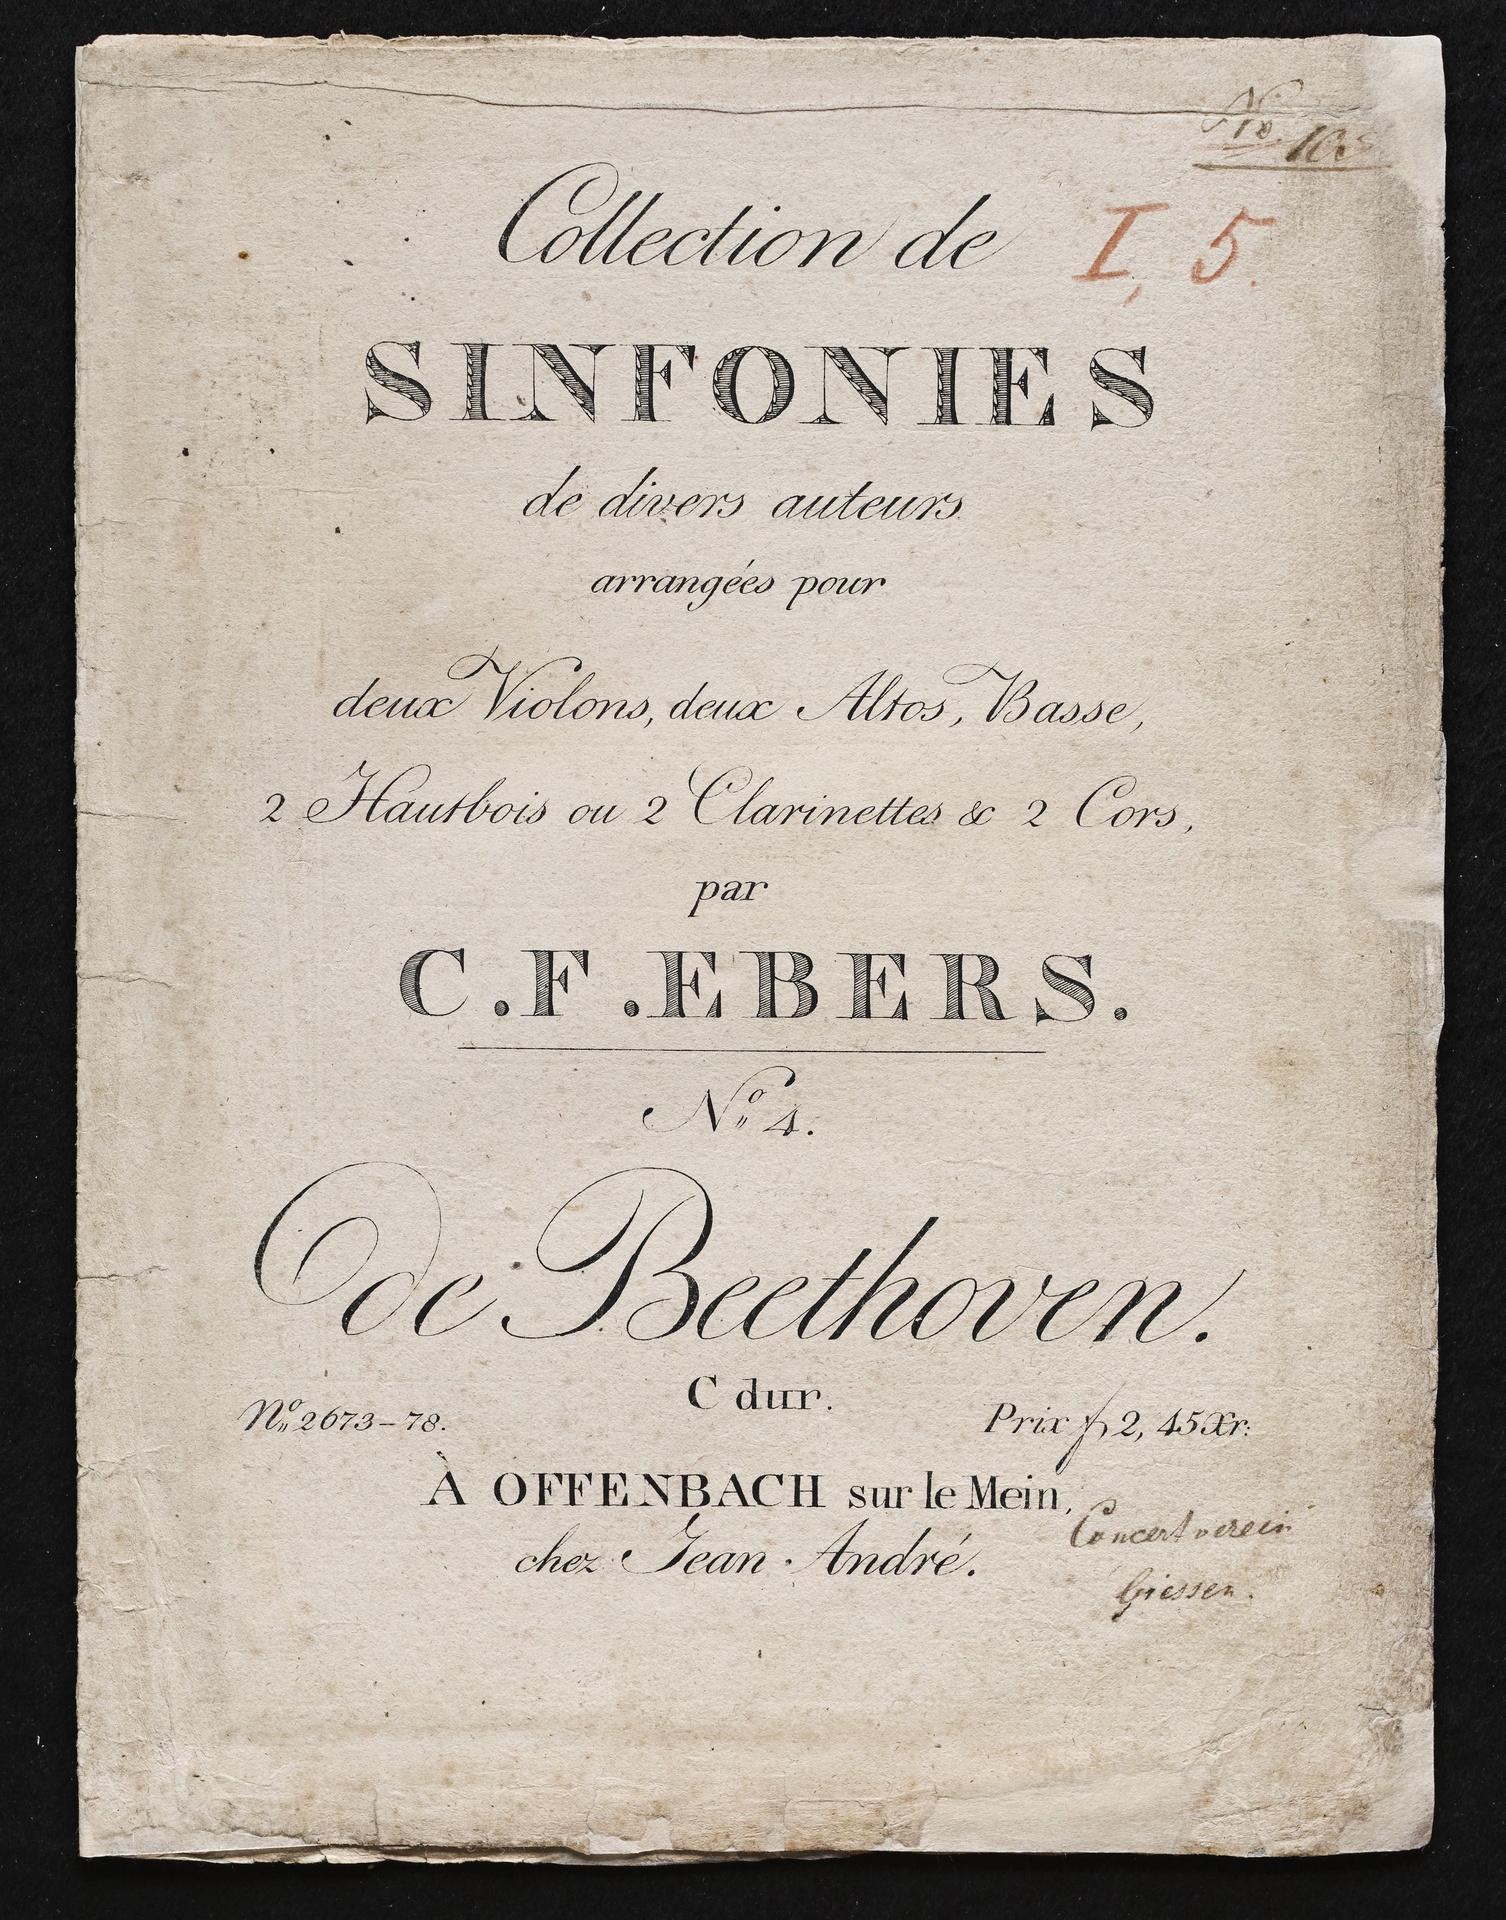 No
Collection de
I, 5.
SINFONIES
de divers auteurs
arrangées pour
deux Violons, deux Altos, Basse,
2 Hautbois ou 2 Clarinettes & 2 Cors,
par
C. F. EBERS.
No. 4.
de Beethoven.
C dur.
No. 2673-78.
Prix f 2, 45 Xr:
À OFFENBACH sur le Mein,
chez Jean André.
Concertverein
Giessen.